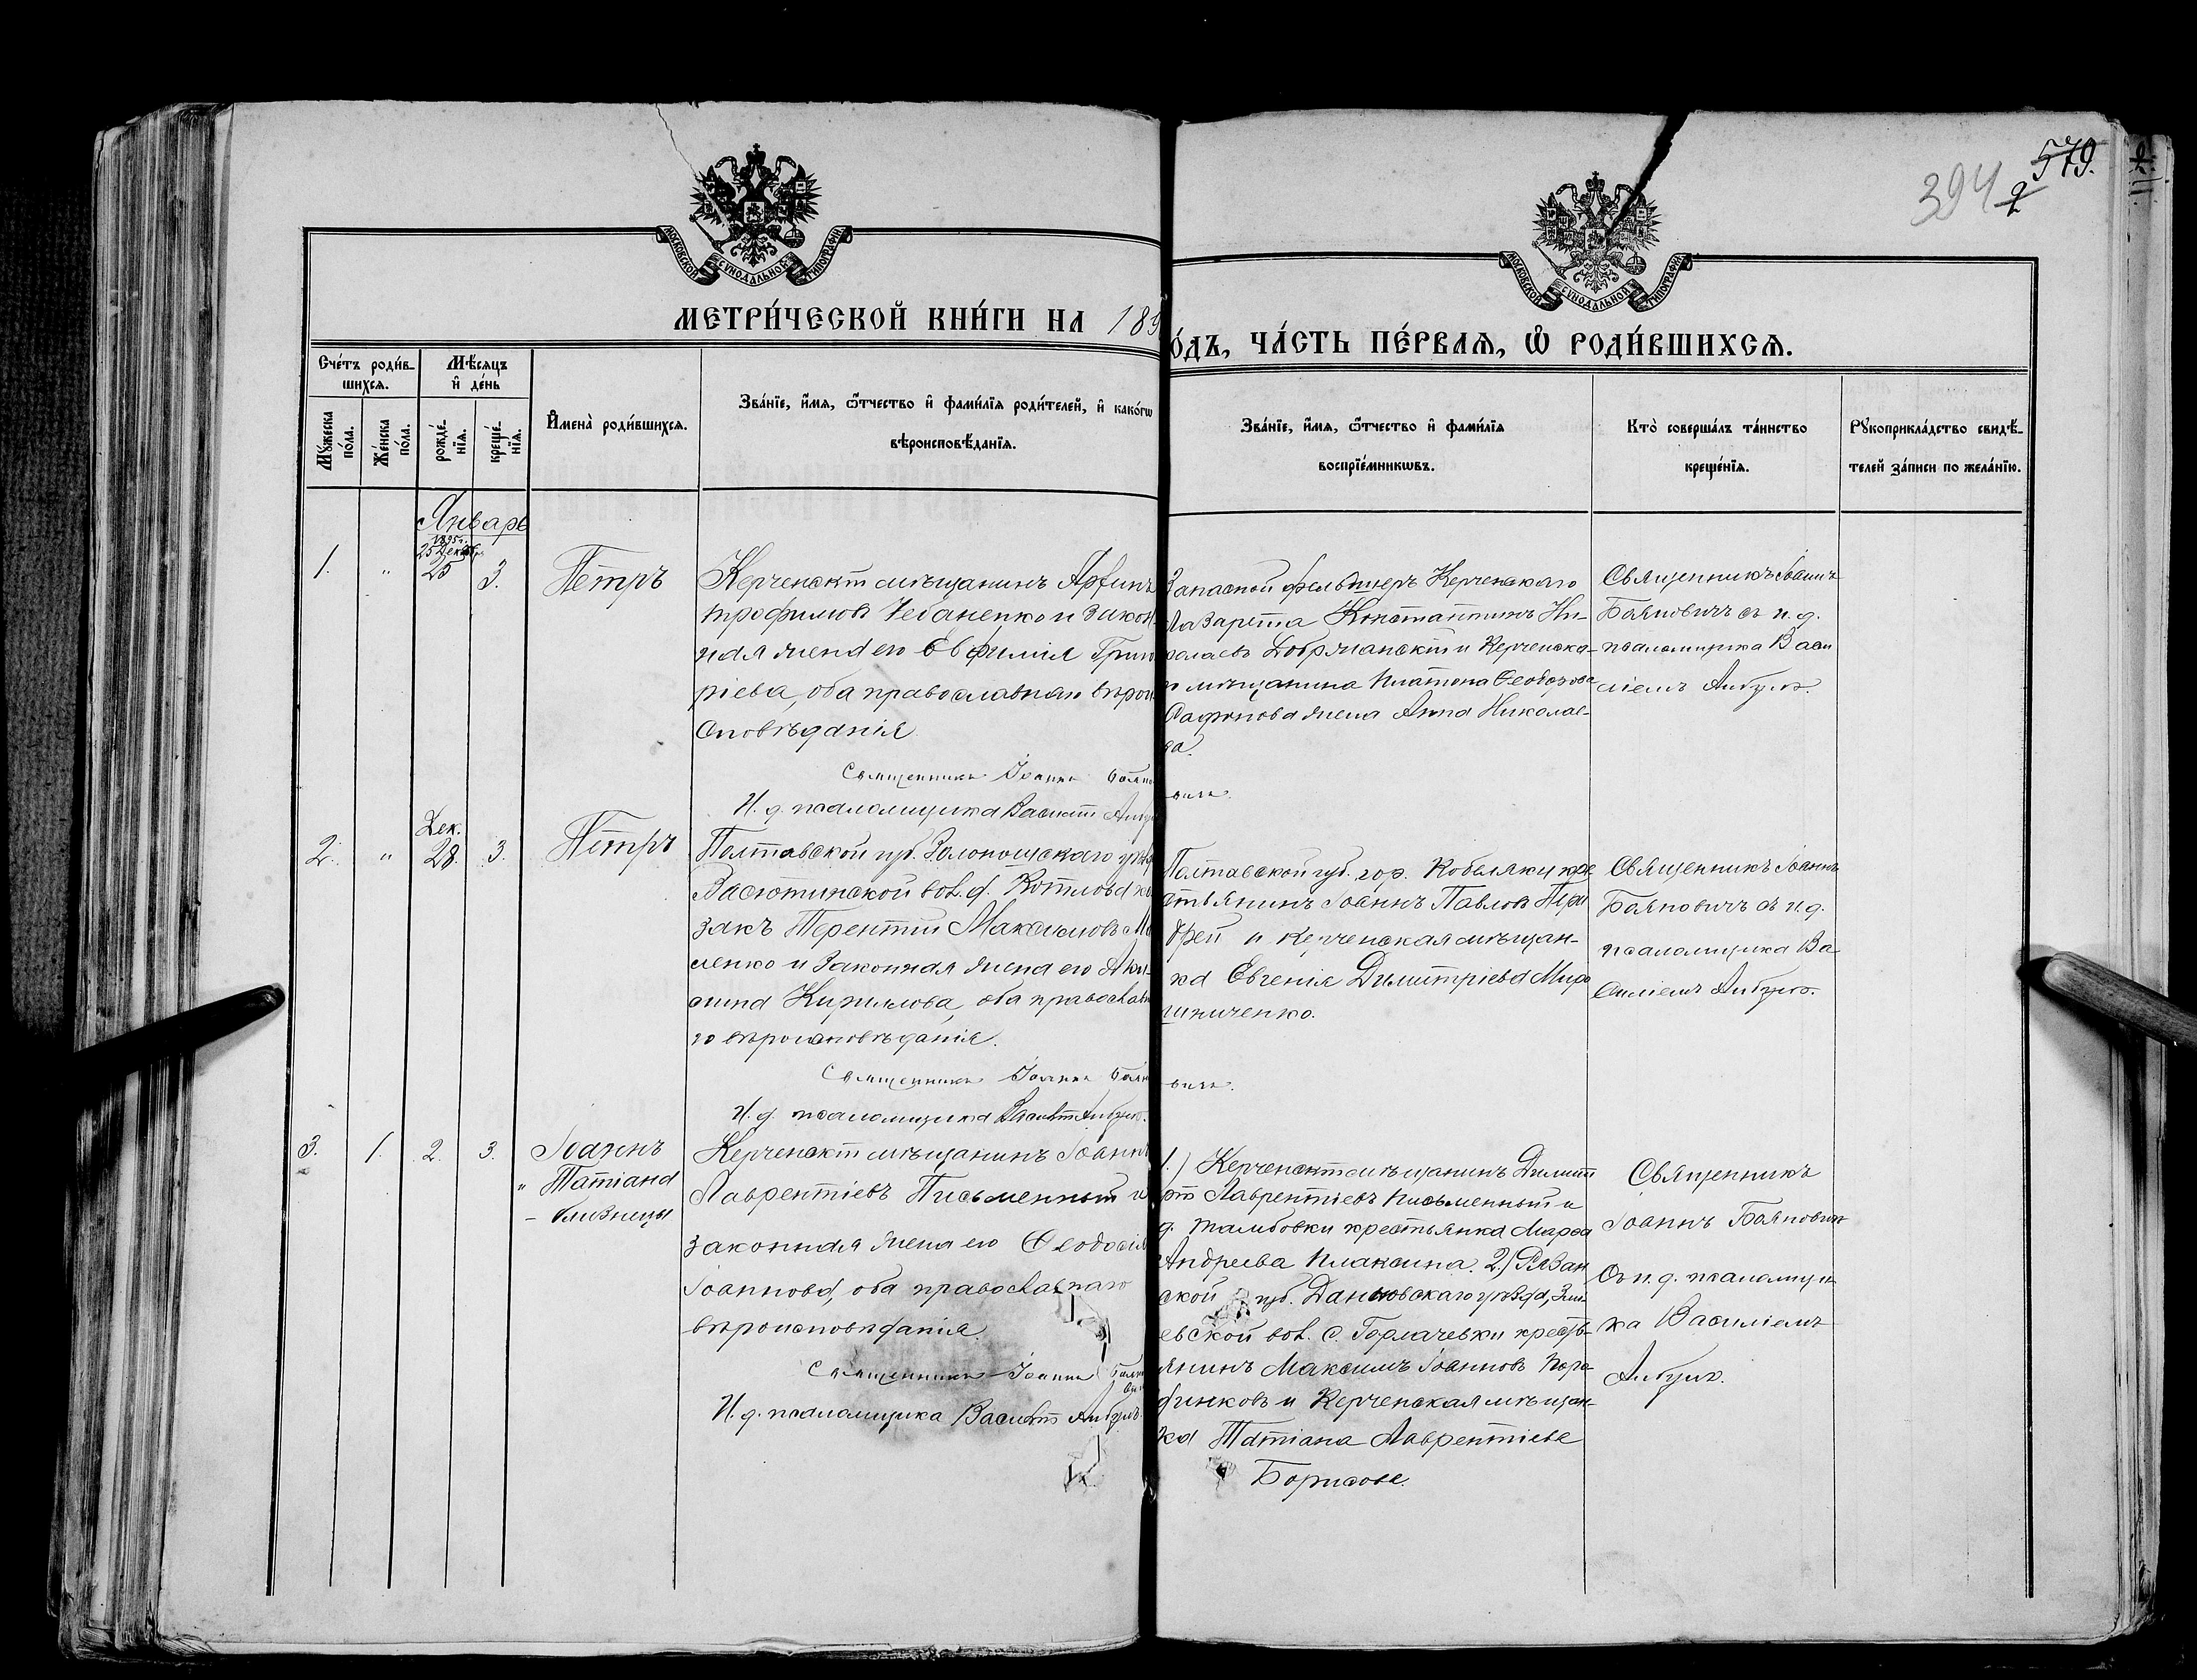 579.
394
2
МОСКОВСКОЙ СѴНОДАЛЬНОЙ ТИПОГРАФІИ
МОСКОВСКОЙ СѴНОДАЛЬНОЙ ТИПОГРАФІИ
МЕТРИ́ЧЕСКОЙ КНИ́ГИ НА 189
О́ДЪ, ЧА́СТЬ ПЕ́РВАѦ, Ѡ҆ РОДИ́ВШИХСѦ.
Сче́тъ роди́в-
шихсѧ.
Мꙋжеска
по́ла.
Же́нска
по́ла.
Мѣ́сѧцъ
и҆ де́нь
рожде́-
нїѧ.
креще́-
нїѧ.
И҆мена̀ роди́вшихсѧ.
Зва́нїе, и҆́мѧ, ѻ҆́тчество и҆ фами́лїѧ роди́телей, и҆ како́гѡ
вѣроисповѣ́данїѧ.
Зва́нїе, и҆́мѧ, ѻ҆́тчество и҆ фами́лїѧ
воспрїе́мникѡвъ.
Кто̀ соверша́лъ та́инство
креще́нїѧ.
Рꙋкоприкла́дство свидѣ́-
телей за́писи по жела́нїю.
Январь
1895 г.
25 Декабр.
1. " 25 3. Петръ
Керченскій мѣщанинъ Арѳинъ
Трофимовъ Чебаненко и закон-
ная жена его Евфимія Григо
ріева, оба православнаго вѣрои
сповѣданія.
Священникъ Іоаннъ Баяно
И. д. псаломщика Василій
Запасной фельдшеръ Керченскаго
Лазарета Константинъ Ни-
колаевъ Добрянскій и Керченска-
го мѣщанина Платона Ѳеодорова
жена Анна Николае-
ва.
вичъ.
Священникъ Іоаннъ
Баяновичъ съ и. д.
псаломщика Васи
ліемъ
Дек.
2. " 28. 3. Петръ
Полтавской губ. Золоношскаго уѣзд
Васютинской вол. д. Котлова ко
закъ Терентій Максимовъ
ленко и законная жена его Аки-
лина Кириллова, оба православна
го вѣроисповѣданія.
Священникъ Іоаннъ Баян
И. д. псаломщика Василій
Полтавской губ. гор. Кобеляки кре
стьянинъ Іоаннъ Павловъ
и Керченская мѣщан-
ка Евгенія Димитріева Миро
шниченко.
вичъ.
Священникъ Іоаннъ
Баяновичъ съ и. д.
псаломщика Ва
силіемъ
3. 1. 2. 3. Іоаннъ
" Татіана
– близнецы
Керченскій мѣщанинъ Іоаннъ
Лаврентіевъ Письменный и
законная жена его Ѳеодосія
Іоаннова, оба православнаго
вѣроисповѣданія.
Священникъ Іоаннъ Баяно
вич
И. д. псаломщика Василій
1.) Керченскій мѣщанинъ Димит
рій Лаврентіевъ Письменный и
д. Тамбовки крестьянка Марѳа
Андреева Плаксина. 2.) Рязан
ской губ. Данковскаго уѣзда, Зми
евской вол. с. Горлачевки кресть-
янинъ Максимъ Іоанновъ Пора
финковъ и Керченская мѣщан-
ка Татіана Лаврентіева
Борисова.
Священникъ
Іоаннъ Баяновичъ
Съ и. д. псаломщи
ка Василіемъ